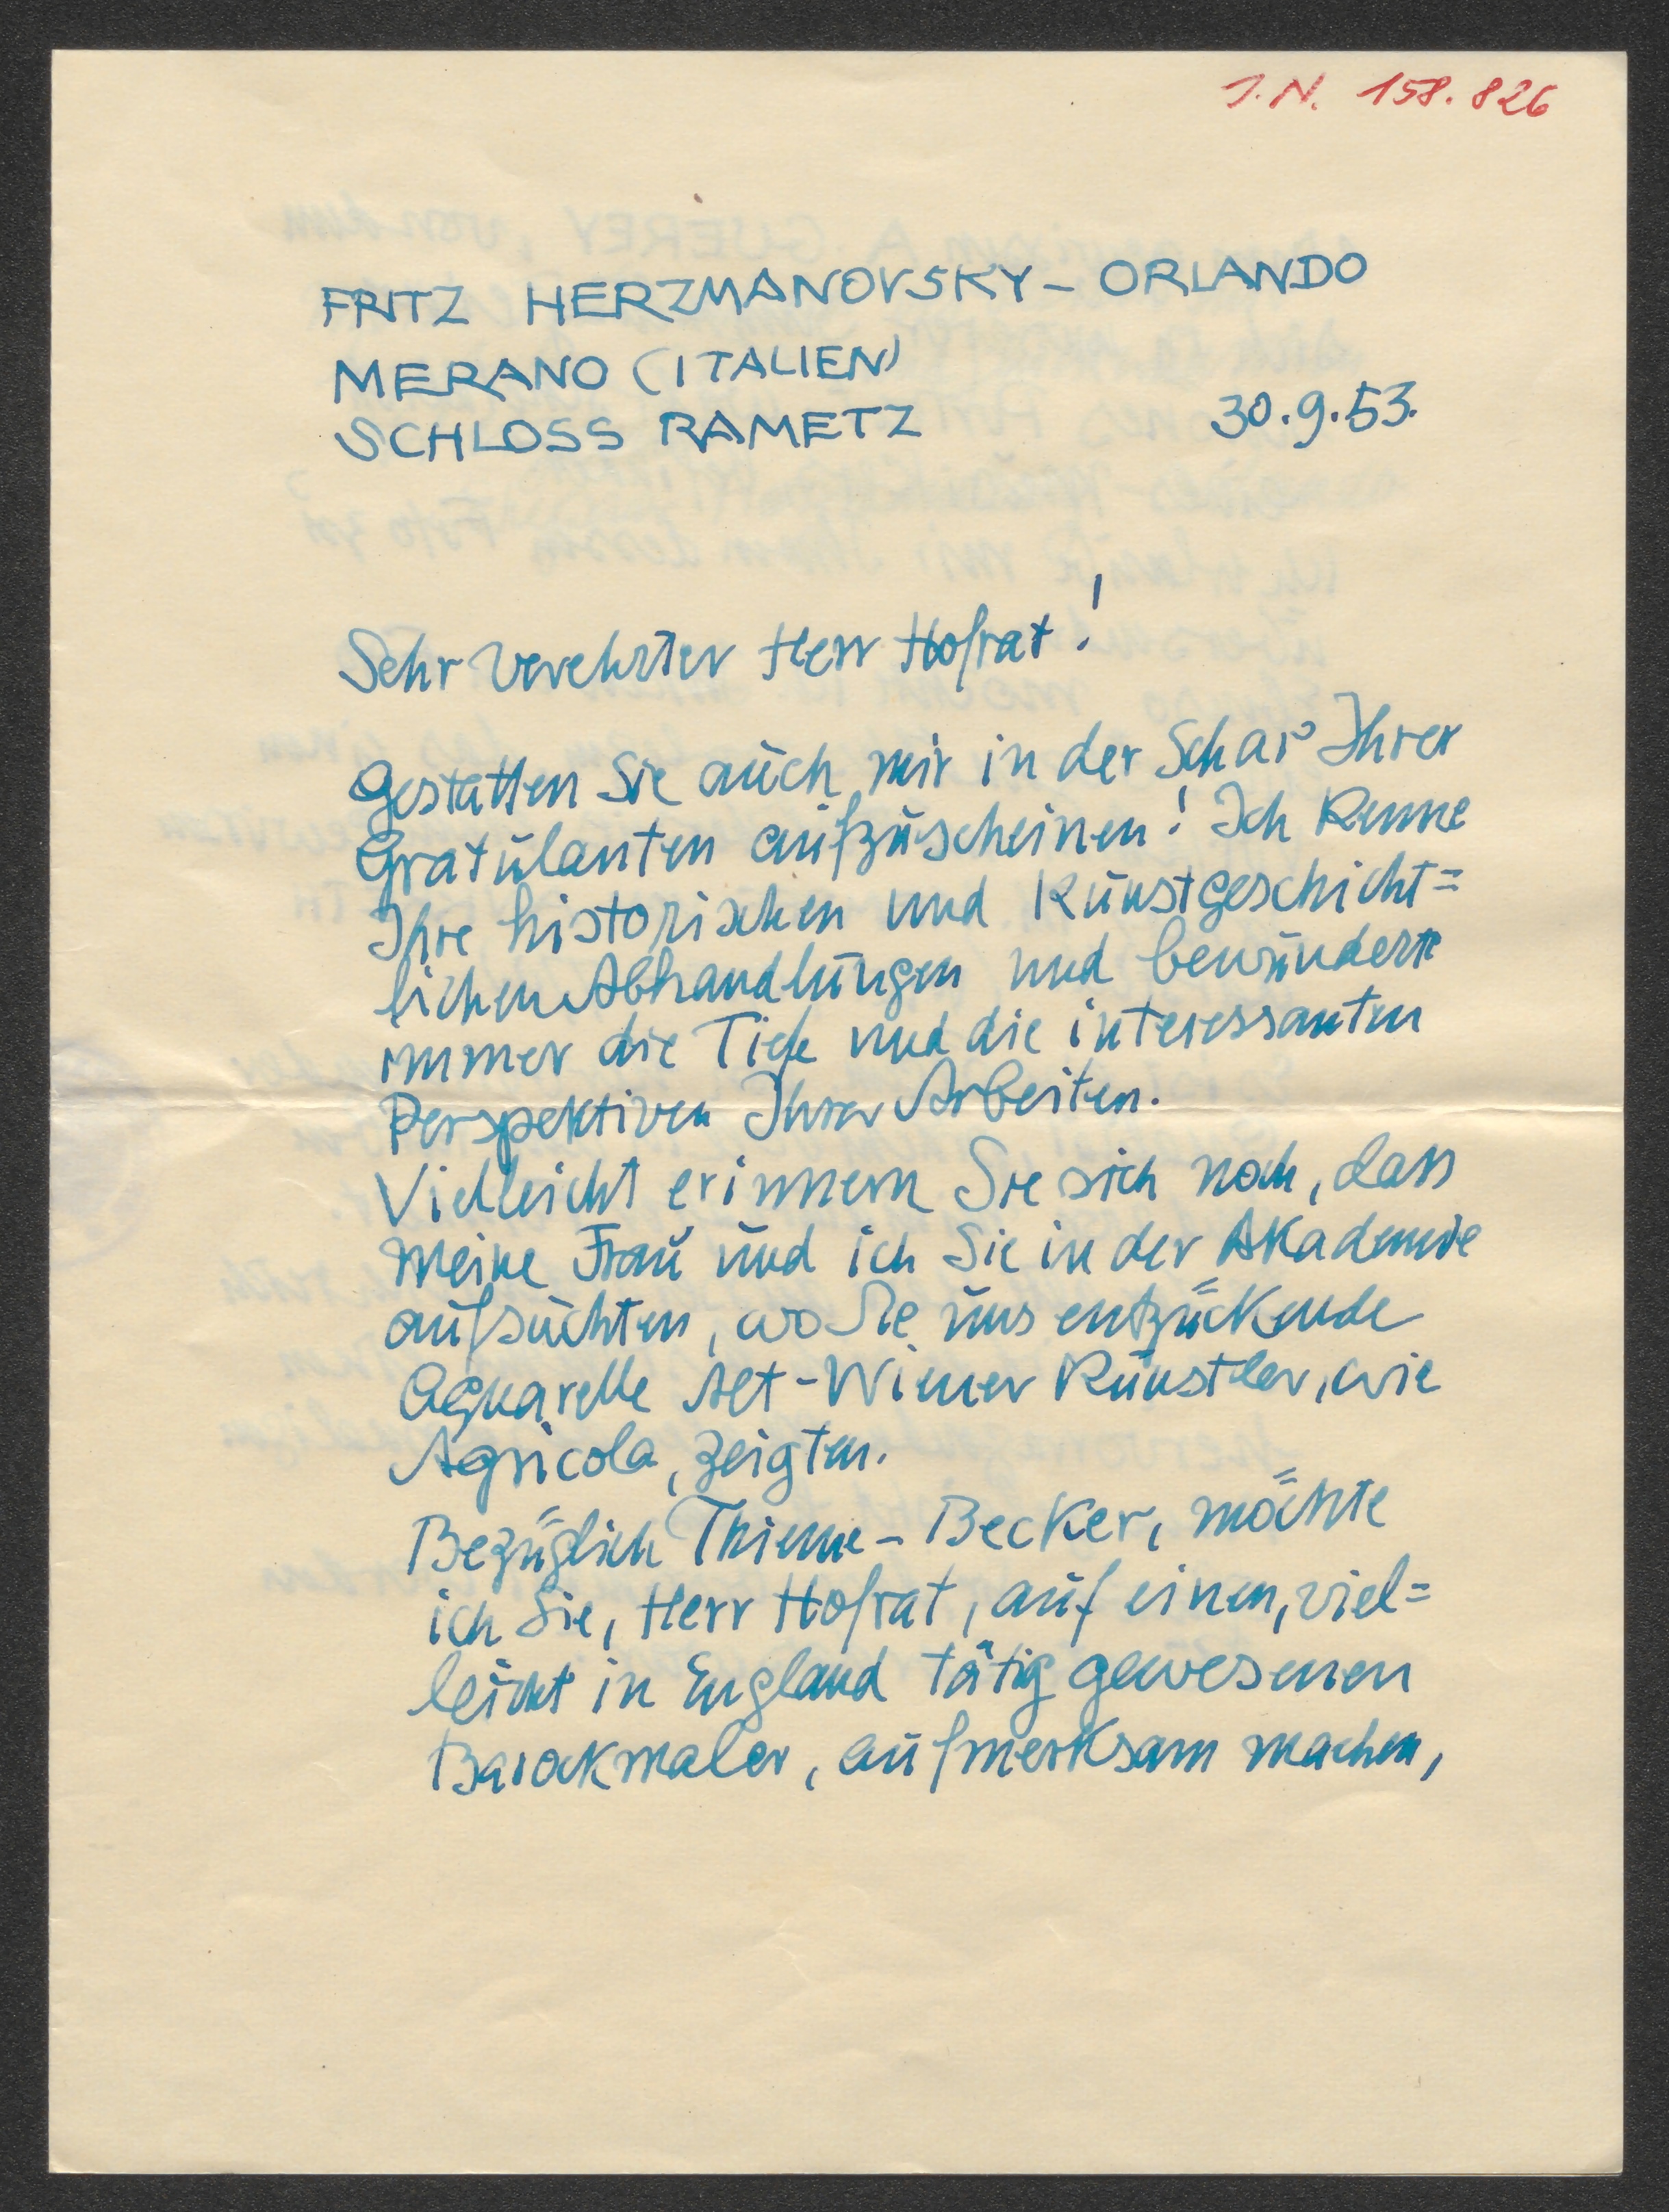 J.N. 158.826
FRITZ HERZMANOVSKY-ORLANDO
MERANO (ITALIEN)
SCHLOSS RAMETZ 30.9.53.
Sehr verehrter Herr Hofrat!
Gestatten Sie auch mir in der Schar Ihrer
Gratulanten aufzuscheinen! Ich kenne
Ihre historischen und kunstgeschicht=
lichen Abhandlungen und bewundere
immer die Tiefe und die interessanten
Perspektiven Ihrer Arbeiten.
Vielleicht erinnern Sie sich noch, dass
meine Frau und ich Sie in der Akademie
aufsuchten, wo Sie uns entzückende
Aquarelle Alt-Wiener Künstler, wie
Agricola, zeigten.
Bezüglich Thieme-Becker, möchte
ich Sie, Herr Hofrat, auf einen, viel=
leicht in England tätig gewesenen
Barockmaler, aufmerksam machen,